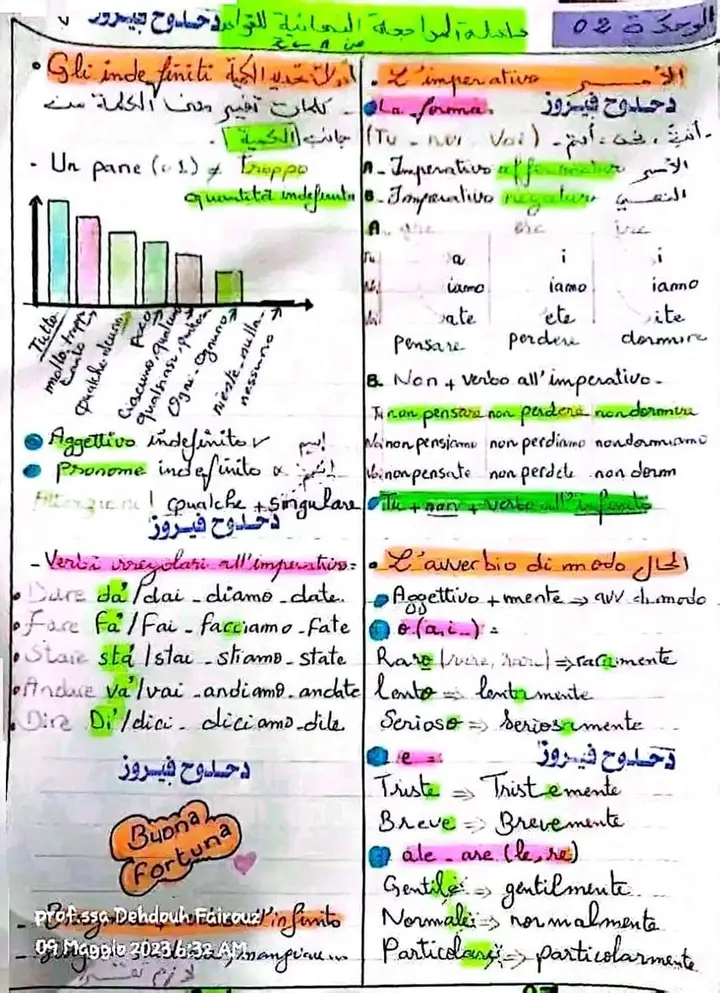 الوحدة 02
سلسلة المراجعة النهائية للقواعد
دحدوح فيروز
L'imperativo الأمر
La forma: دحدوح فيروز
(Tu - noi - Voi) - أنت، نحن، أنتم.
A - Imperativo affermativo الأمر
B - Imperativo negativo النهي
A. are ere ire
Tu a i i
Noi iamo iamo iamo
Voi ate ete ite
pensare perdere dormire
B. Non + verbo all'imperativo.
Tu non pensare non perdere non dormire
Noi non pensiamo non perdiamo non dormiamo
Voi non pensate non perdete non dorm
Tu + non + verbo all'infinito
L'avverbio di modo الحال
Aggettivo + mente => avv di modo
o (a, i..) =
Raro => raramente
Lento => lentamente
Serioso => Seriosamente
e =
دحدوح فيروز
Triste => Tristemente
Breve => Brevemente
ale - are (le, re)
Gentile => gentilmente
Normale => normalmente
Particolare => particolarmente
Gli indefiniti
كلمات تغير معنى الكلمة من
جانب الكمية.
- Un pane (01) ≠ troppo
quantità indefinita
Tutto
molto, troppo
tanto
qualche, alcuni
poco
Ciascuno, qualunque
qualsiasi,
Ogni - Ognuno
niente - nulla -
nessuno
Aggettivo indefinito √ اسم
Pronome indefinito × اسم
Attenzione! qualche + singulare
دحدوح فيروز
- Verbi irregolari all'imperativo:
Dare da'/dai - diamo - date.
Fare Fa'/Fai - facciamo - Fate
Stare sta'/stai - stiamo - state
Andare va'/vai - andiamo - andate
Dire Di'/dici - diciamo - dite
دحدوح فيروز
Buona
Fortuna
l'infinito
prof.ssa Dehdouh Fairouz
09 Maggio 2023 6:32 AM